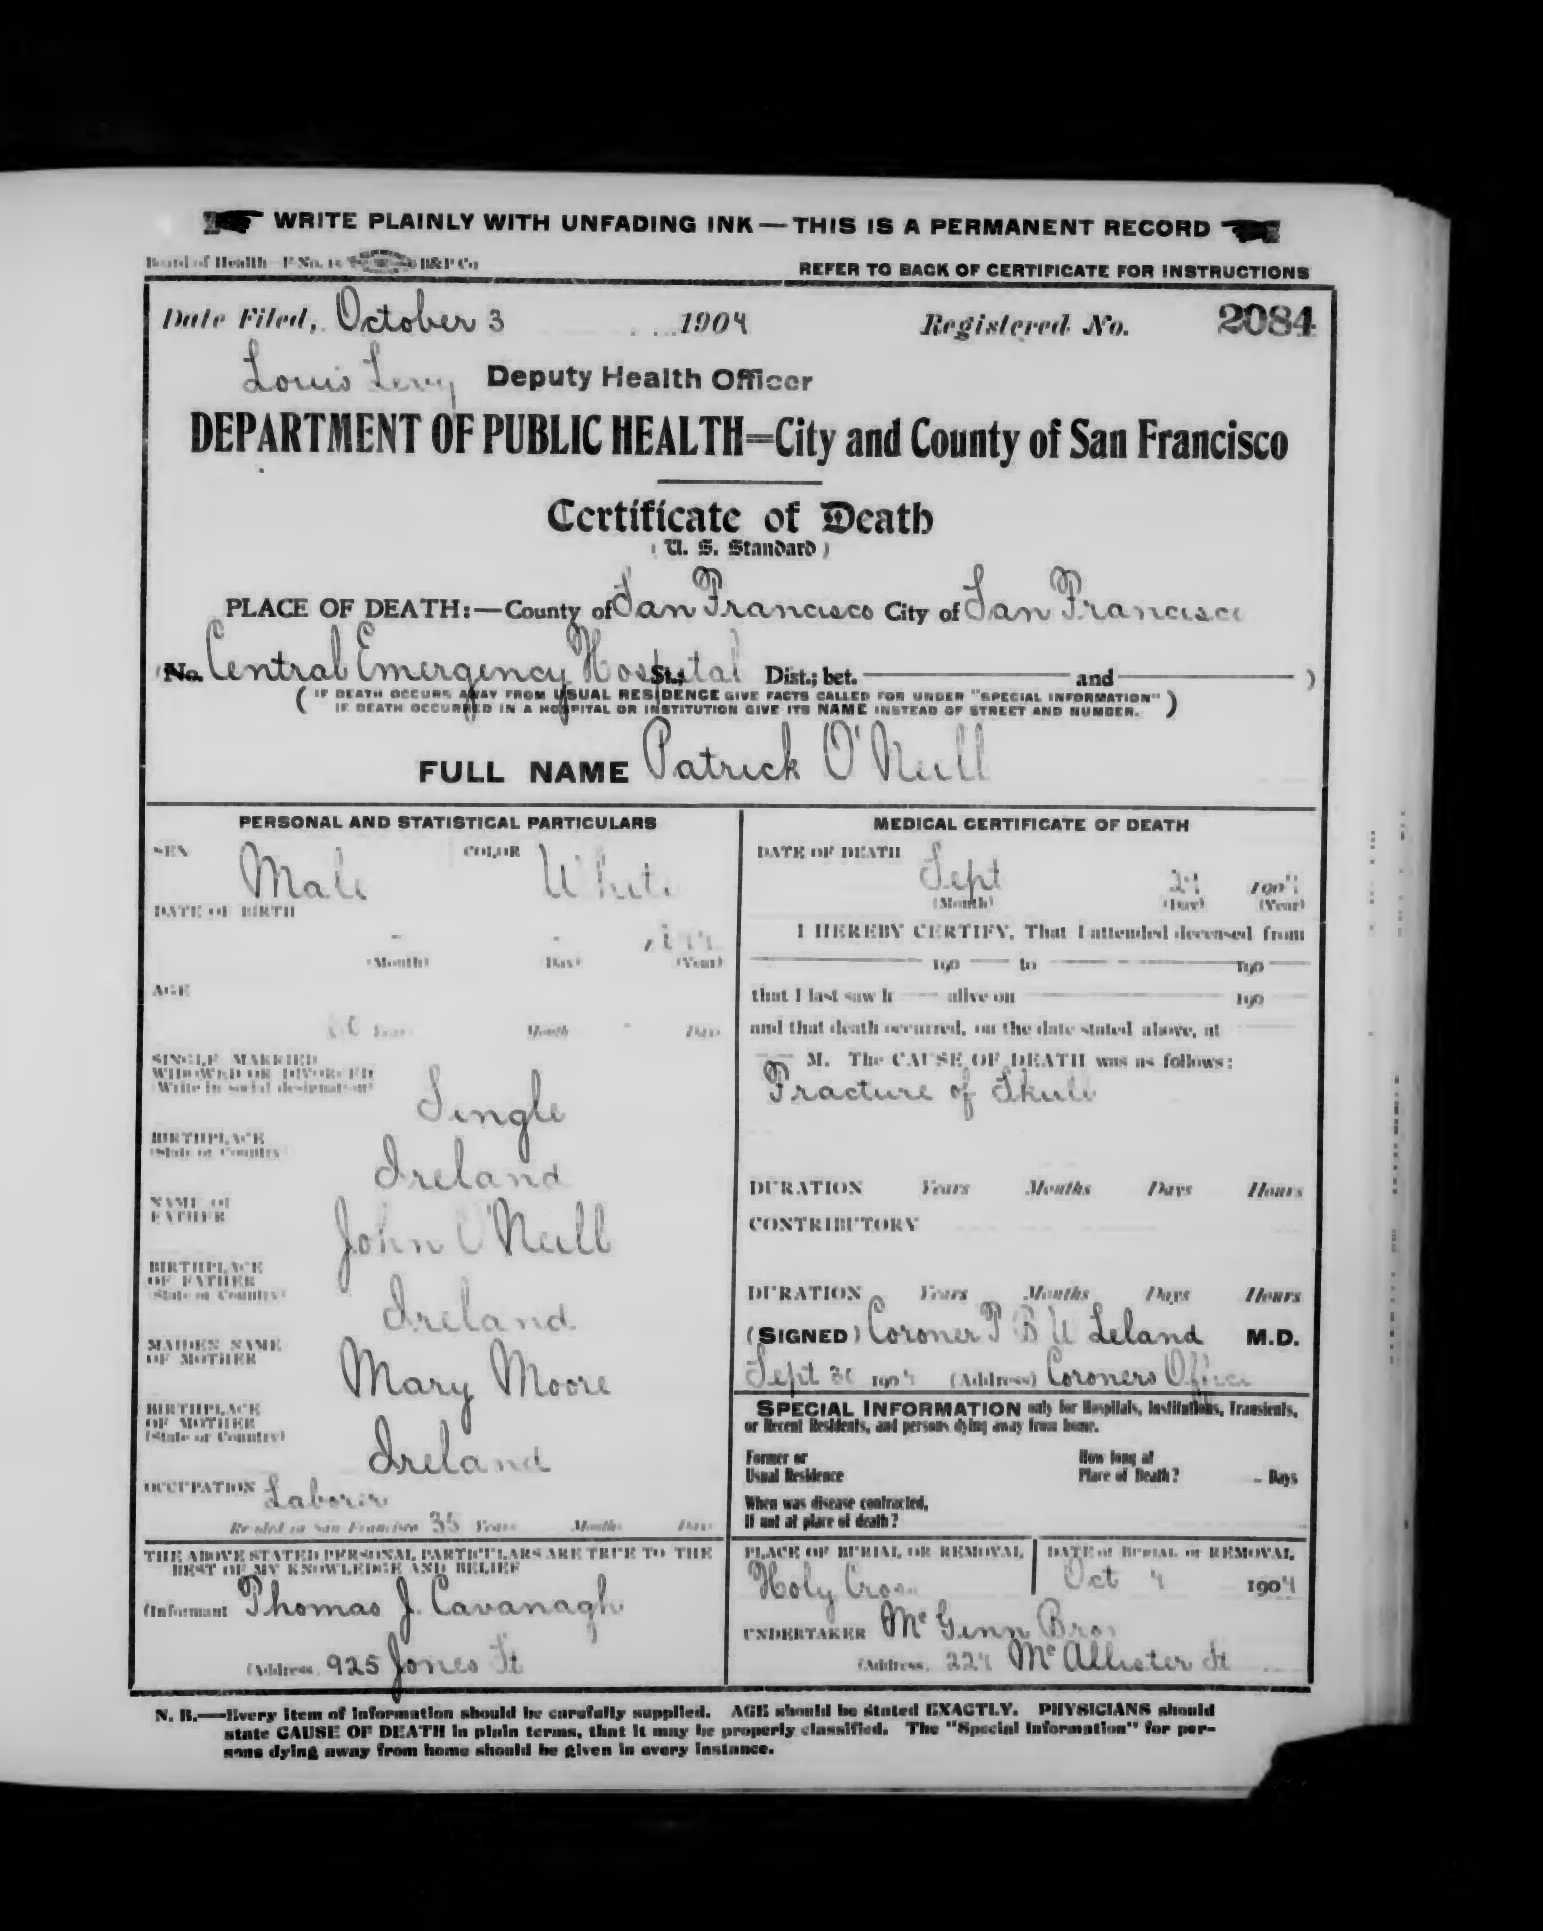 WRITE PLAINLY WITH UNFADING INK — THIS IS A PERMANENT RECORD
Board of Health—F No. 15 B&P Co
REFER TO BACK OF CERTIFICATE FOR INSTRUCTIONS
Date Filed, October 3 1904 Registered No. 2084
Louis Levy Deputy Health Officer
DEPARTMENT OF PUBLIC HEALTH=City and County of San Francisco
Certificate of Death
(U. S. Standard)
PLACE OF DEATH:—County of San Francisco City of San Francisco
(No. Central Emergency Hospital St.; Dist.; bet. and )
(IF DEATH OCCURS AWAY FROM USUAL RESIDENCE GIVE FACTS CALLED FOR UNDER "SPECIAL INFORMATION"
IF DEATH OCCURRED IN A HOSPITAL OR INSTITUTION GIVE ITS NAME INSTEAD OF STREET AND NUMBER.)
FULL NAME Patrick O'Neill
PERSONAL AND STATISTICAL PARTICULARS
SEX Male COLOR White
DATE OF BIRTH
(Month) (Day) (Year)
AGE
Years Months Days
SINGLE MARRIED
WIDOWED OR DIVORCED
(Write in social designation)
Single
BIRTHPLACE
(State or Country)
Ireland
NAME OF
FATHER
John O'Neill
BIRTHPLACE
OF FATHER
(State or Country)
Ireland
MAIDEN NAME
OF MOTHER
Mary Moore
BIRTHPLACE
OF MOTHER
(State or Country)
Ireland
OCCUPATION Laborer
Resided in San Francisco 35 Years Months Days
THE ABOVE STATED PERSONAL PARTICULARS ARE TRUE TO THE
BEST OF MY KNOWLEDGE AND BELIEF
(Informant Thomas J. Cavanagh
(Address 925 Jones St
MEDICAL CERTIFICATE OF DEATH
DATE OF DEATH
Sept 29 1904
(Month) (Day) (Year)
I HEREBY CERTIFY, That I attended deceased from
190 to 190
that I last saw h alive on 190
and that death occurred, on the date stated above, at
M. The CAUSE OF DEATH was as follows:
Fracture of Skull
DURATION Years Months Days Hours
CONTRIBUTORY
DURATION Years Months Days Hours
(SIGNED) Coroner T B W Leland M.D.
Sept 30 1904 (Address) Coroners Office
SPECIAL INFORMATION only for Hospitals, Institutions, Transients,
or Recent Residents, and persons dying away from home.
Former or
Usual Residence
How long at
Place of Death? Days
When was disease contracted,
If not at place of death?
PLACE OF BURIAL OR REMOVAL
Holy Cross
DATE of BURIAL or REMOVAL
Oct 4 1904
UNDERTAKER McGinn Bros
(Address, McAllister St
N. B.—Every item of information should be carefully supplied. AGE should be stated EXACTLY. PHYSICIANS should
state CAUSE OF DEATH in plain terms, that it may be properly classified. The "Special Information" for per-
sons dying away from home should be given in every instance.